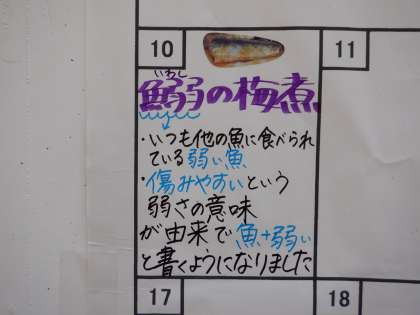 10
11
いわし
鰯の梅煮
・いつも他の魚に食べられ
ている弱い魚
・傷みやすいという
弱さの意味
が由来で魚+弱い
と書くようになりました
17
18